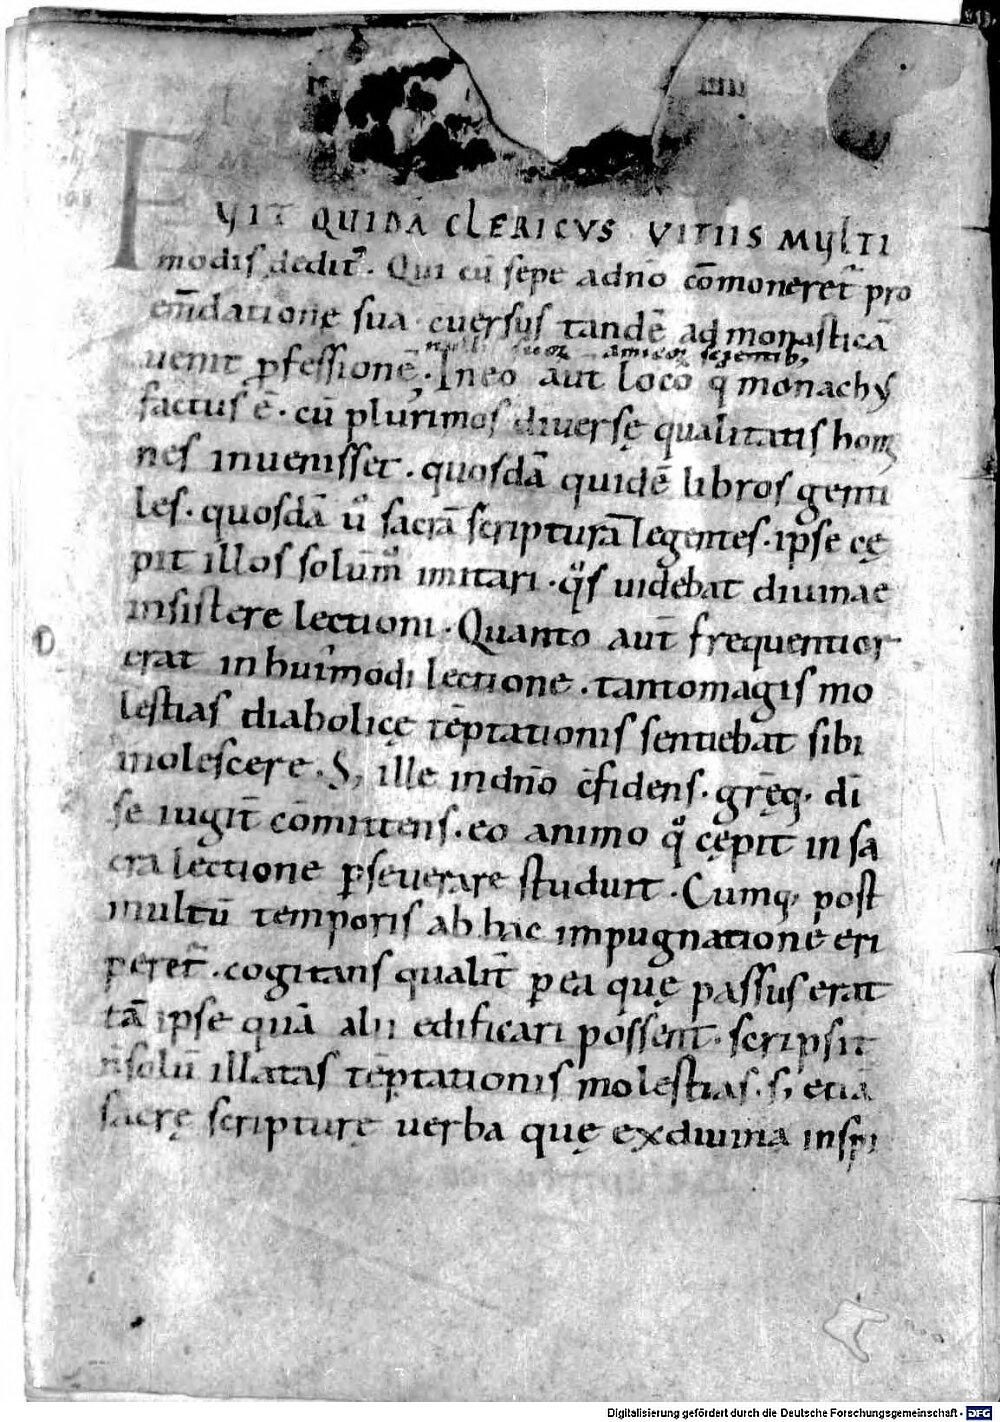 FUIT QUIDĀ CLERICVS · VITIIS MULTI
modis dedit᷒. Qui cū sepe adnō cōmoneret᷒ pro
em̄datione sua cuersus tandē ad monasticā
nulli suoꝝ amicoꝝ scientib;
uenit ꝓfessionē. In eo aut loco q̇ monachus
factus ē · cū plurimos diuersę qualitatis homi
nes inuenisset · quosdā quidē libros genti
les · quosdā ů sacrā scripturā legentes · ipse cę
pit illos solūm̊ imitari · q̊s uidebat diuinae
insistere lectioni · Quanto aut̄ frequentior
erat in hui᷒modi lectione · tantomagis mo
lestias diabolicę tēptationis sentiebat sibi
inolescere. S; ille in dn̄o c̄fidens · grēq; di
se iugit̄ cōmittens · eo animo q̊ cępit in sa
cra lectione ꝑseuerare studuit · Cumq; post
multū temporis ab hac impugnatione eri
peret᷒ · cogitans qualit̄ ꝑ ea quę passus erat
tā ipse quā alii edificari possent · scripsit
n̄ solū illatas tēptationis molestias · s; etiā
sacrę scripturę uerba quę ex diuina inspi
Digitalisierung gefördert durch die Deutsche Forschungsgemeinschaft - DFG